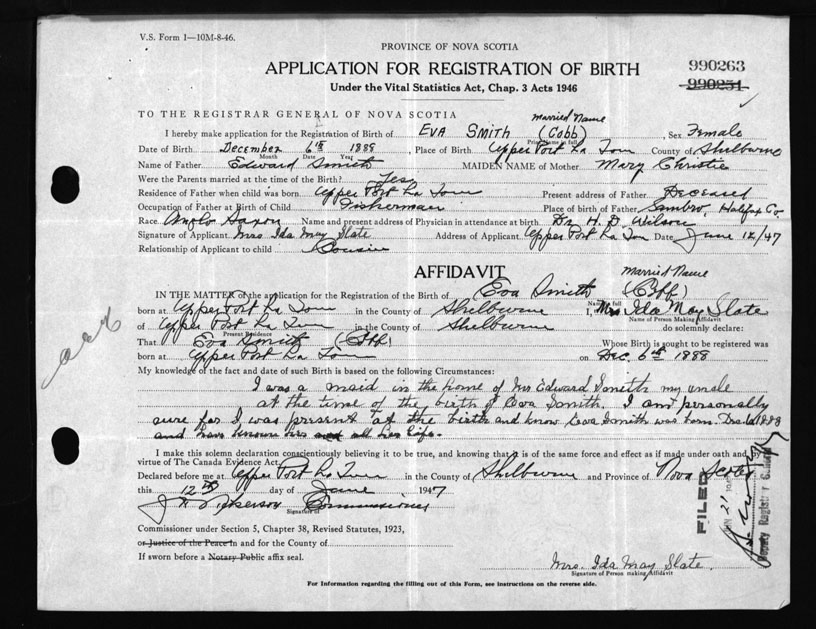 V.S. Form 1—10M-8-46.
PROVINCE OF NOVA SCOTIA
990263
APPLICATION FOR REGISTRATION OF BIRTH
990251
Under the Vital Statistics Act, Chap. 3 Acts 1946
TO THE REGISTRAR GENERAL OF NOVA SCOTIA
married Name
I hereby make application for the Registration of Birth of Eva Smith (Cobb), Sex Female
Print name in full
Date of Birth December 6th 1888, Place of Birth Upper Port La Tour County of Shelburne
Month Date Year
Name of Father Edward Smith MAIDEN NAME of Mother Mary Christie
Were the Parents married at the time of the Birth? Yes
Residence of Father when child was born Upper Port La Tour Present address of Father Deceased
Occupation of Father at Birth of Child Fisherman Place of birth of Father Sambro, Halifax Co
Race Anglo Saxon Name and present address of Physician in attendance at birth Dr. H. B. Wilson
Signature of Applicant Mrs Ida May Slate Address of Applicant Upper Port La Tour Date June 12/47
Relationship of Applicant to child Cousin
AFFIDAVIT
married Name
IN THE MATTER of the application for the Registration of the Birth of (Eva Smith (Cobb)
Name in full
born at Upper Port La Tour in the County of Shelburne I, Mrs Ida May Slate
Name of Person Making Affidavit
of Upper Port La Tour in the County of Shelburne do solemnly declare:
Present Residence
That Eva Smith (Cobb) Whose Birth is sought to be registered was
born at Upper Port La Tour on Dec. 6th 1888
My knowledge of the fact and date of such Birth is based on the following Circumstances:
I was a maid in the home of Mrs Edward Smith my uncle
at the time of the birth of Eva Smith. I am personally
sure for I was present at the birth and know Eva Smith was born Dec 6 1888
and have known her all her life.
I make this solemn declaration conscientiously believing it to be true, and knowing that it is of the same force and effect as if made under oath and by
virtue of The Canada Evidence Act.
Declared before me at Upper Port La Tour in the County of Shelburne and Province of Nova Scotia
this 12th day of June 1947
Commissioner
Signature of
Commissioner under Section 5, Chapter 38, Revised Statutes, 1923,
or Justice of the Peace in and for the County of
If sworn before a Notary Public affix seal.
Mrs. Ida May Slate.
Signature of Person making Affidavit
For Information regarding the filling out of this Form, see instructions on the reverse side.
FILED
Deputy Registrar General